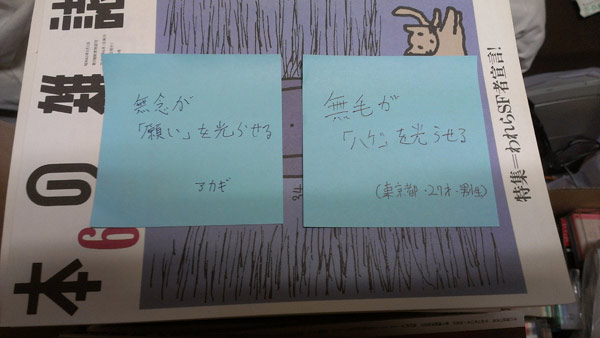 無念が
「願い」を光らせる
アカギ
無毛が
「ハゲ」を光らせる
(東京都・ユリオ・男性)
本の雑誌
6
特集=われらSF者宣言!